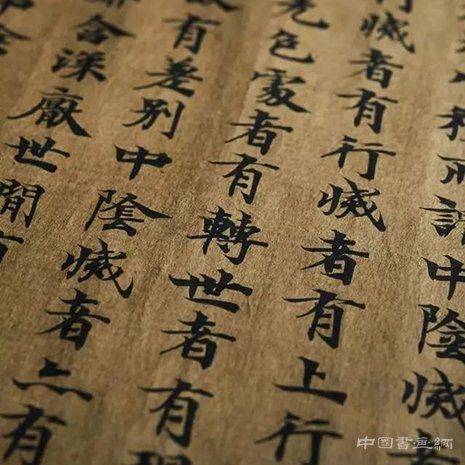 相所謂中陰滅
行滅者有行滅者有上行
色家者有轉世者有現
有差別中陰滅者亦有
含深厭世間有
中國書畫網